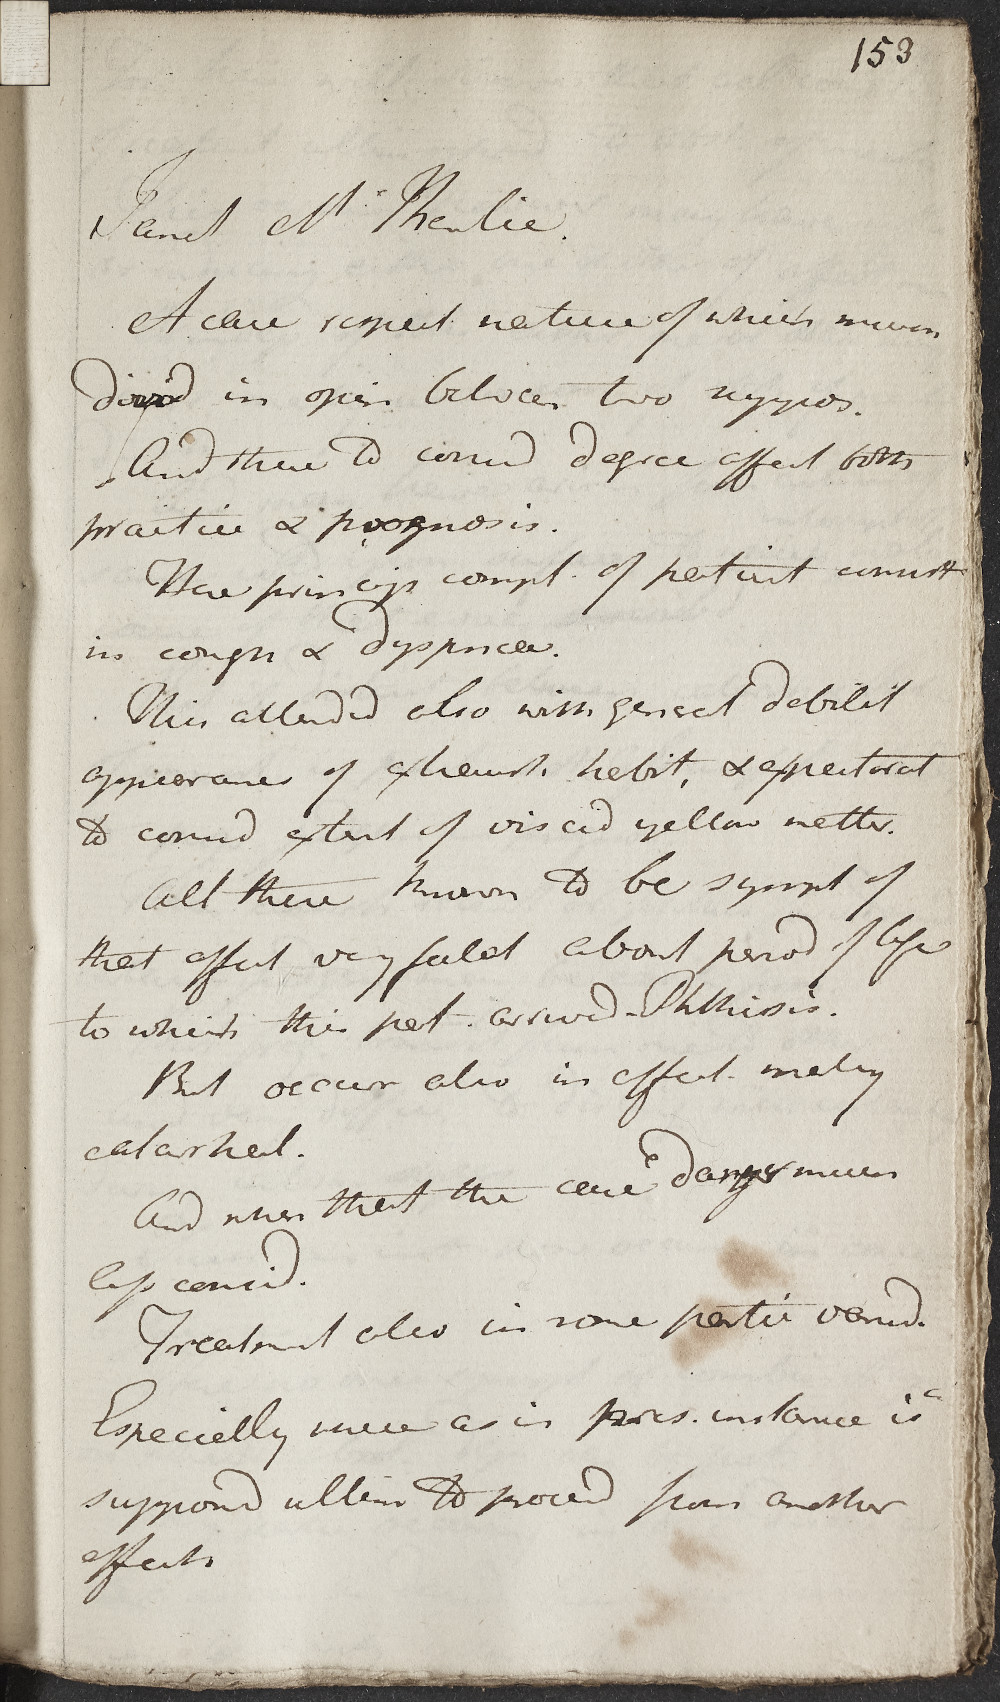 153
Janet Mc
A case respect nature of which
in opin between two suppos.
And these to consid degree affect both
practice & prognosis.
Here princip compl. of patient consist
in cough & dyspnoea.
This attended also with general debilit
appearances of exhaust habit, & expectorat
to consid extent of viscid yellow matter.
All these known to be sympt of
that affect very fatal about period of life
to which this pat. arrived - Phthisis.
But occur also in affect. merely
catarrhal.
And when that the case danger
less consid.
Treatment also in some partic varied.
Especially as in pres. instance is
supposed to proceed from another
affect